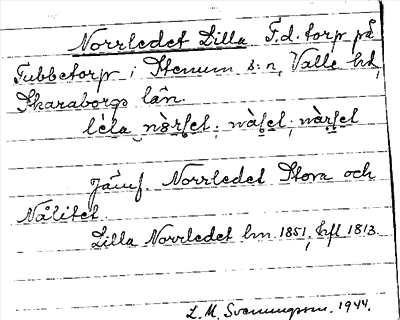 Norrledet Lilla F.d. torp på
Tubbetorp i Stenum s:n, Valle hd,
Skaraborgs län.
Jämf. Norrledet Stora och
Nålitet.
Lilla Norrledet hm 1851, hfl 1813.
L. M. Svenungsson. 1944.